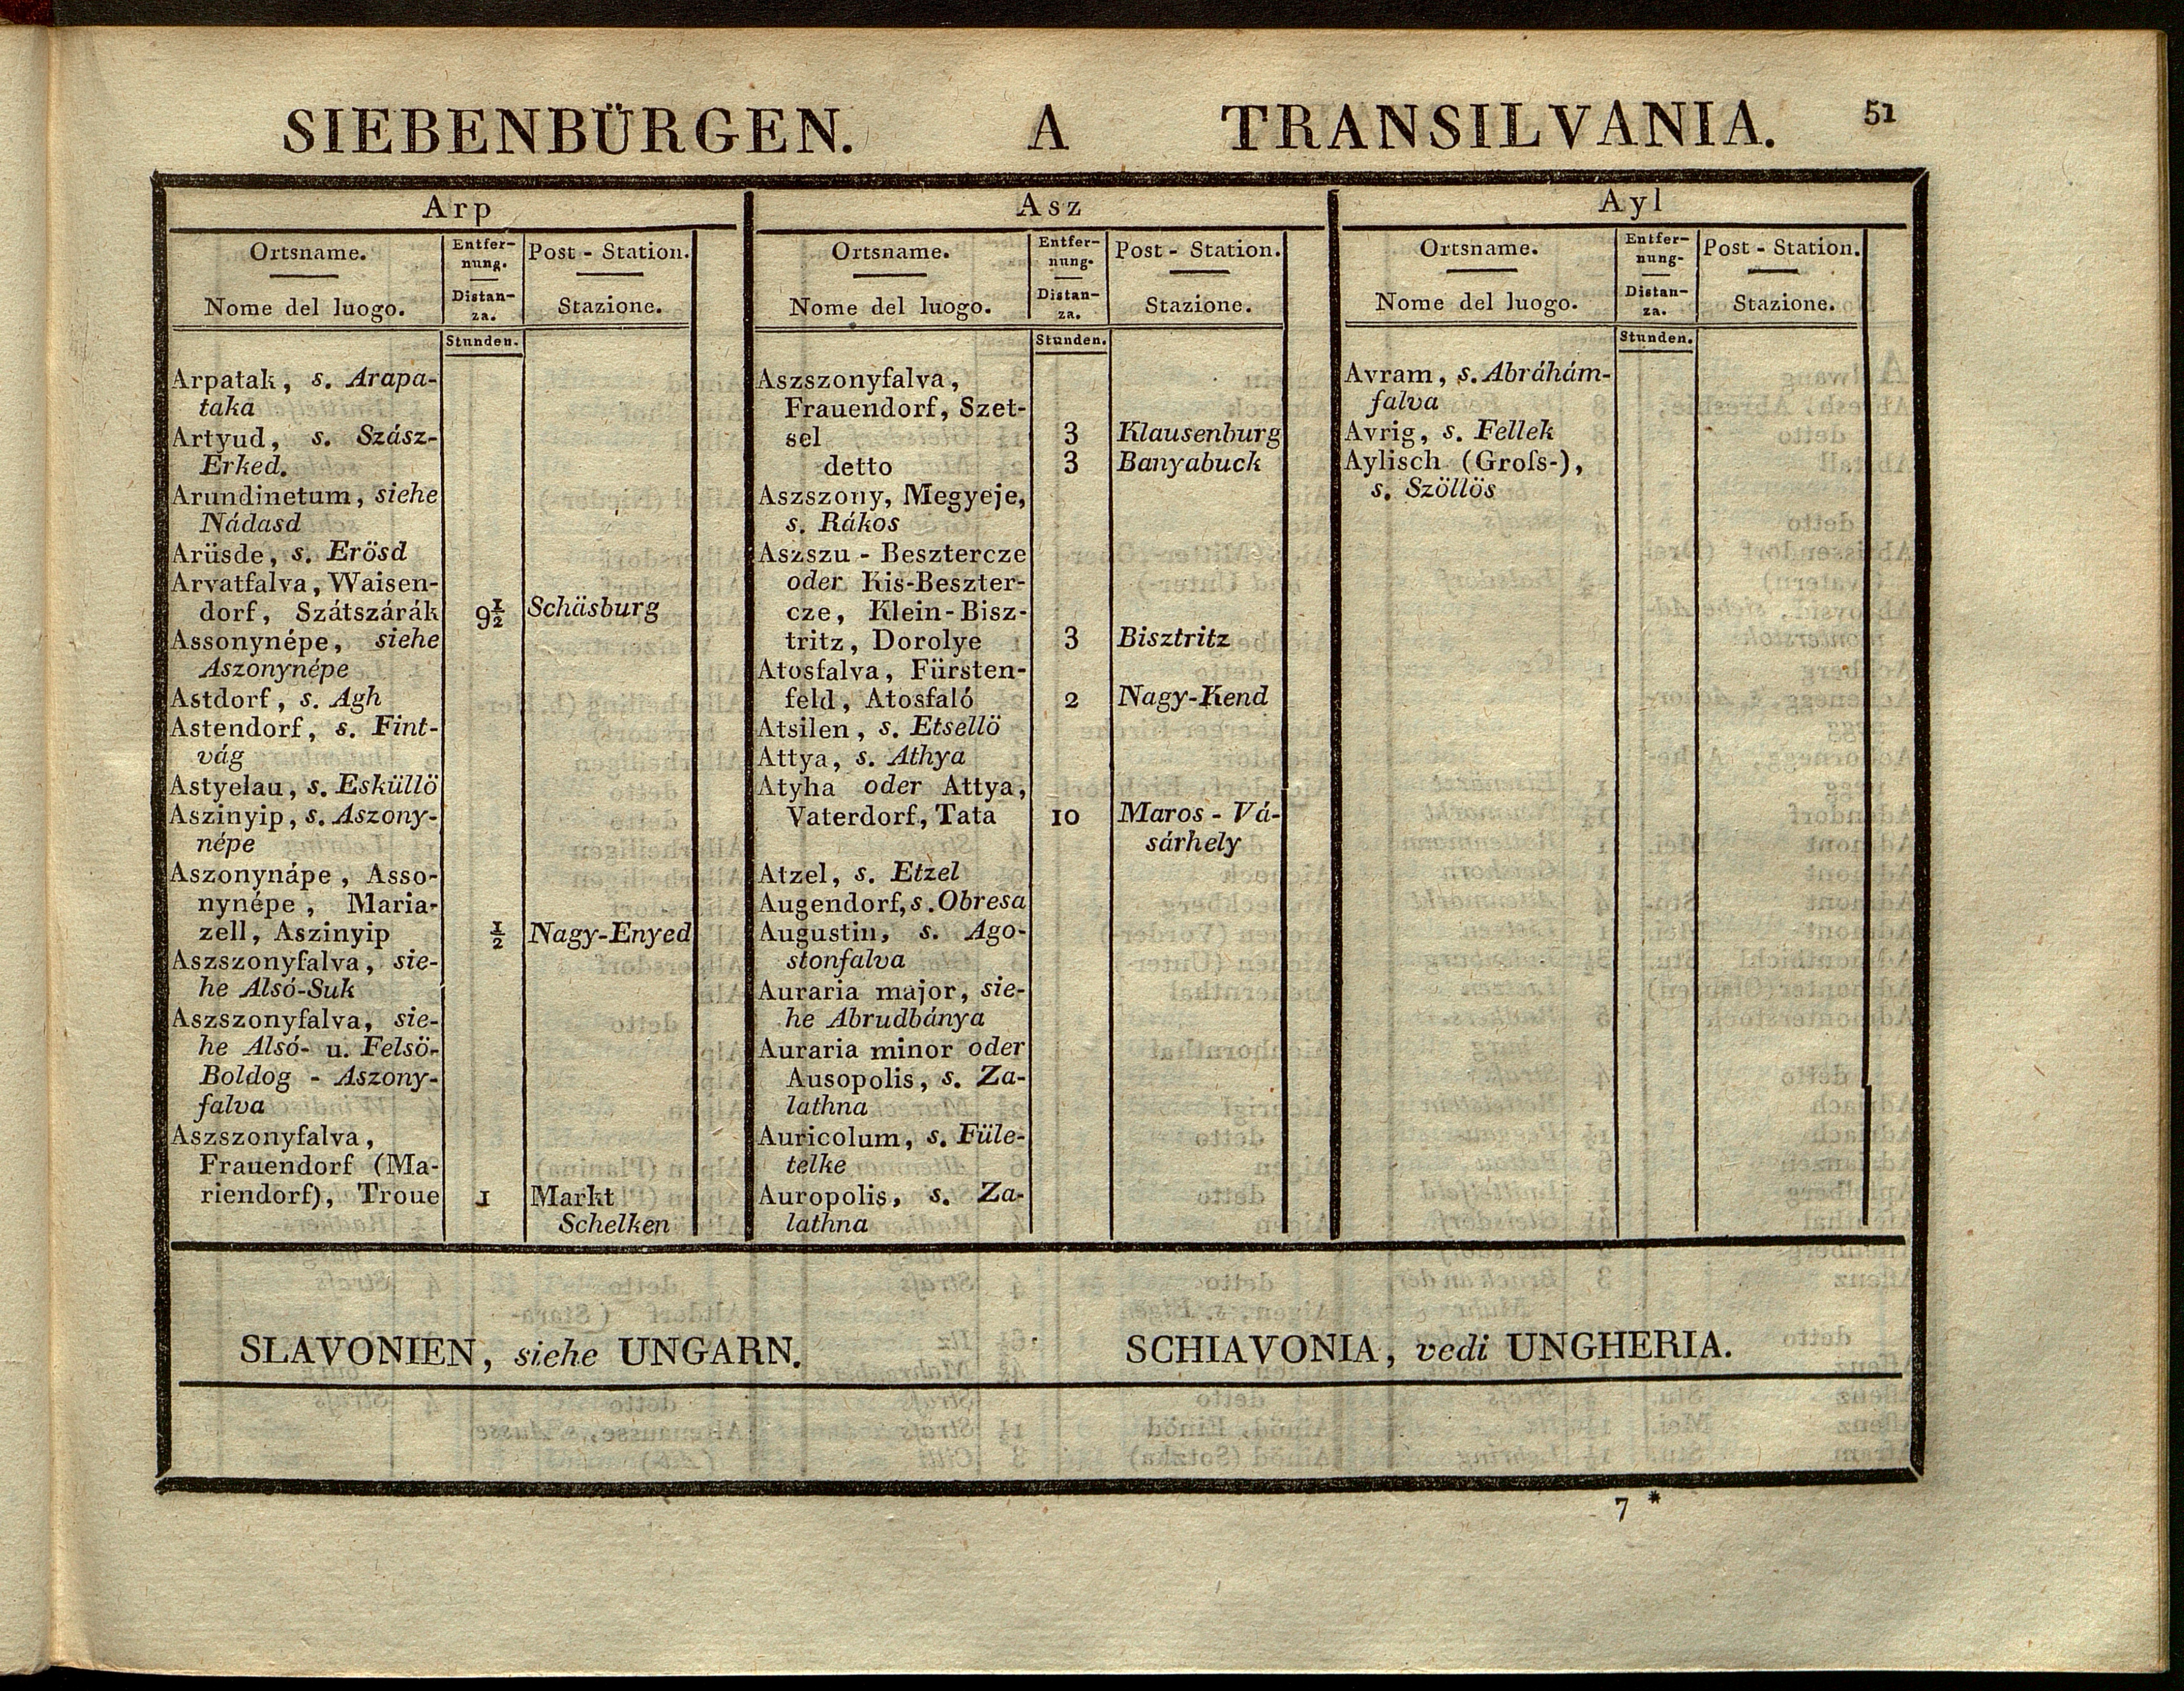 SIEBENBÜRGEN. A TRANSILVANIA. 51
Arp
Ortsname.
Nome del luogo.
Entfer-
nung.
Distan-
za.
Post - Station.
Stazione.
Stunden.
Arpatak, s. Arapa-
taka
Artyud, s. Szász-
Erked.
Arundinetum, siehe
Nádasd
Arüsde, s. Erösd
Arvatfalva, Waisen-
dorf, Szátszárák 9½ Schäsburg
Assonynépe, siehe
Aszonynépe
Astdorf, s. Agh
Astendorf, s. Fint-
vág
Astyelau, s. Esküllö
Aszinyip, s. Aszony-
népe
Aszonynápe, Asso-
nynépe, Maria-
zell, Aszinyip ½ Nagy-Enyed
Aszszonyfalva, sie-
he Alsó-Suk
Aszszonyfalva, sie-
he Alsó- u. Felsö-
Boldog - Aszony-
falva
Aszszonyfalva,
Frauendorf (Ma-
riendorf), Troue 1 Markt
Schelken
Asz
Ortsname.
Nome del luogo.
Entfer-
nung.
Distan-
za.
Post - Station.
Stazione.
Stunden.
Aszszonyfalva,
Frauendorf, Szet-
sel 3 Klausenburg
detto 3 Banyabuck
Aszszony, Megyeje,
s. Rákos
Aszszu - Besztercze
oder Kis-Beszter-
cze, Klein-Bisz-
tritz, Dorolye 3 Bisztritz
Atosfalva, Fürsten-
feld, Atosfaló 2 Nagy-Kend
Atsilen, s. Etsellö
Attya, s. Athya
Atyha oder Attya,
Vaterdorf, Tata 10 Maros - Vá-
sárhely
Atzel, s. Etzel
Augendorf, s. Obresa
Augustin, s. Ago-
stonfalva
Auraria major, sie-
he Abrudbánya
Auraria minor oder
Ausopolis, s. Za-
lathna
Auricolum, s. Füle-
telke
Auropolis, s. Za-
lathna
Ayl
Ortsname.
Nome del luogo.
Entfer-
nung-
Distan-
za.
Post - Station.
Stazione.
Stunden.
Avram, s. Abráhám-
falva
Avrig, s. Fellek
Aylisch (Groſs-),
s. Szöllös
SLAVONIEN, siehe UNGARN. SCHIAVONIA, vedi UNGHERIA.
7 *